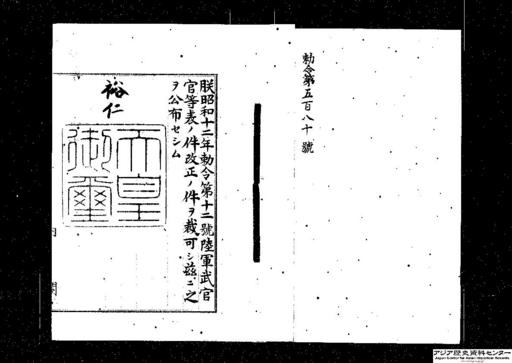 勅令第五百八十號
朕昭和十二年勅令第十二號陸軍武官
官等表ノ件改正ノ件ヲ裁可シ茲ニ之
ヲ公布セシム
裕仁
天皇
御璽
内
閣
アジア歴史資料センター
Japan Center for Asian Historical Records